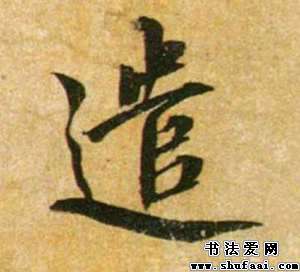 遣
书法爱网
www.shufaai.com